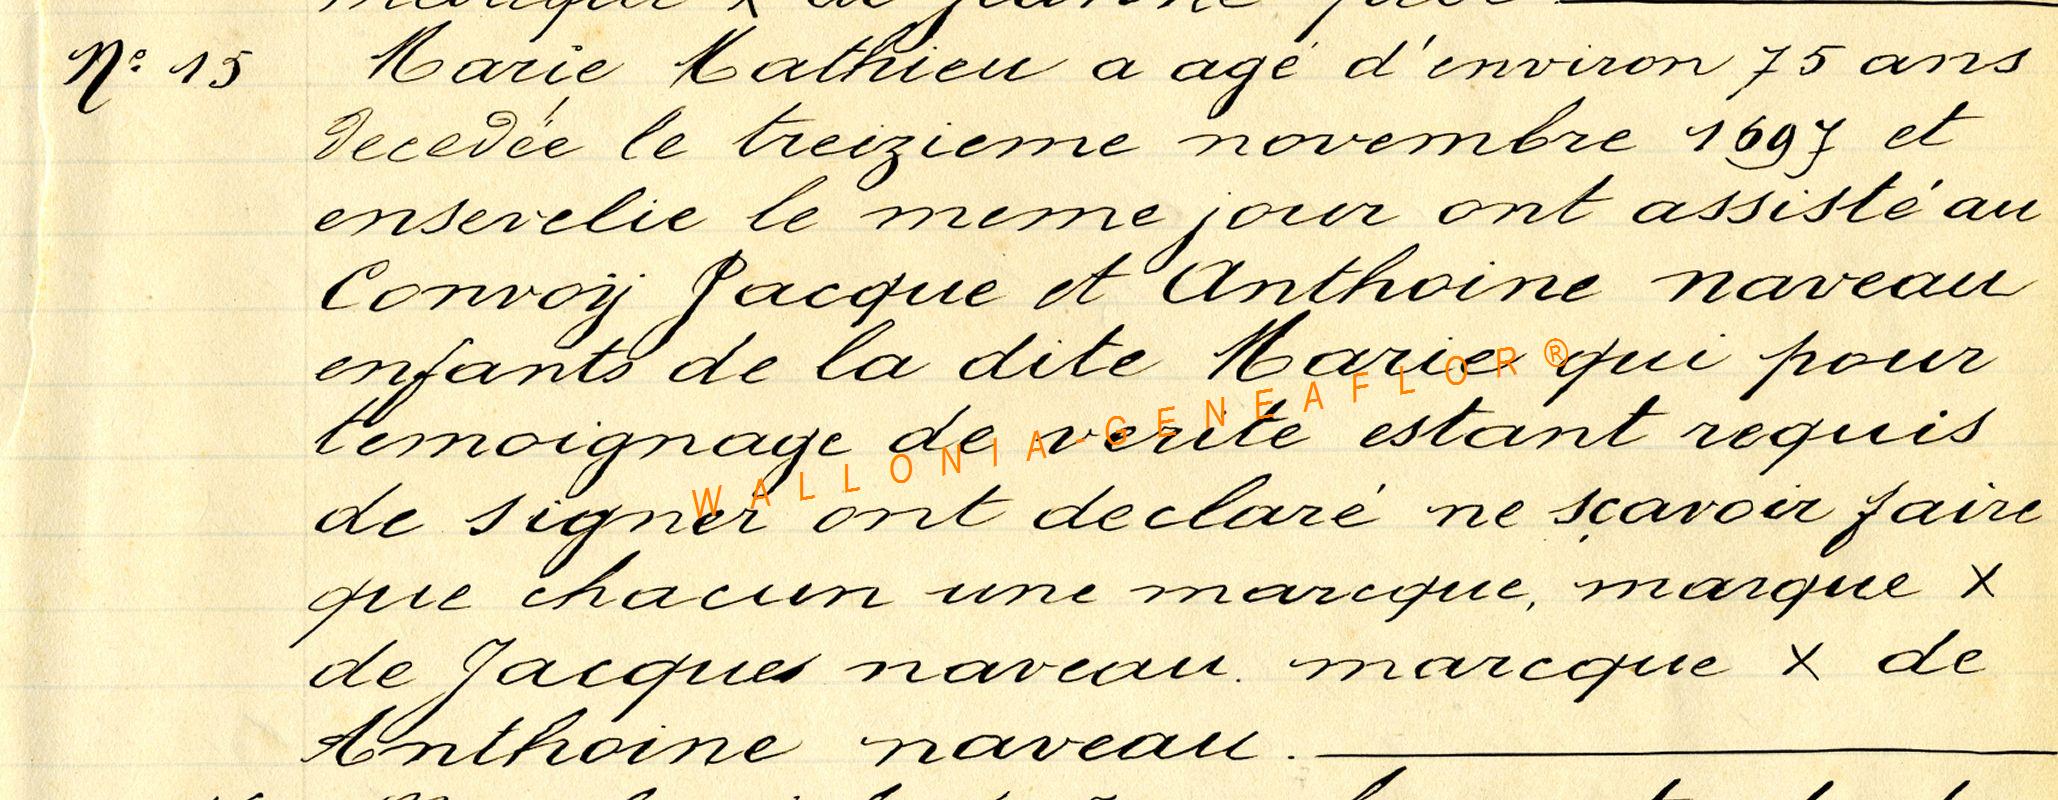 N° 15 Marie Mathieu a agé d'environ 75 ans
decedée le treizieme novembre 1697 et
ensevelie le meme jour ont assisté au
Convoij Jacque et Anthoine naveau
enfants de la dite Marie qui pour
temoignage de verite estant requis
de signer ont declaré ne sçavoir faire
que chacun une marcque, marque x
de Jacques naveau. marcque x de
Anthoine naveau.
WALLONIA-GENEAFLOR®